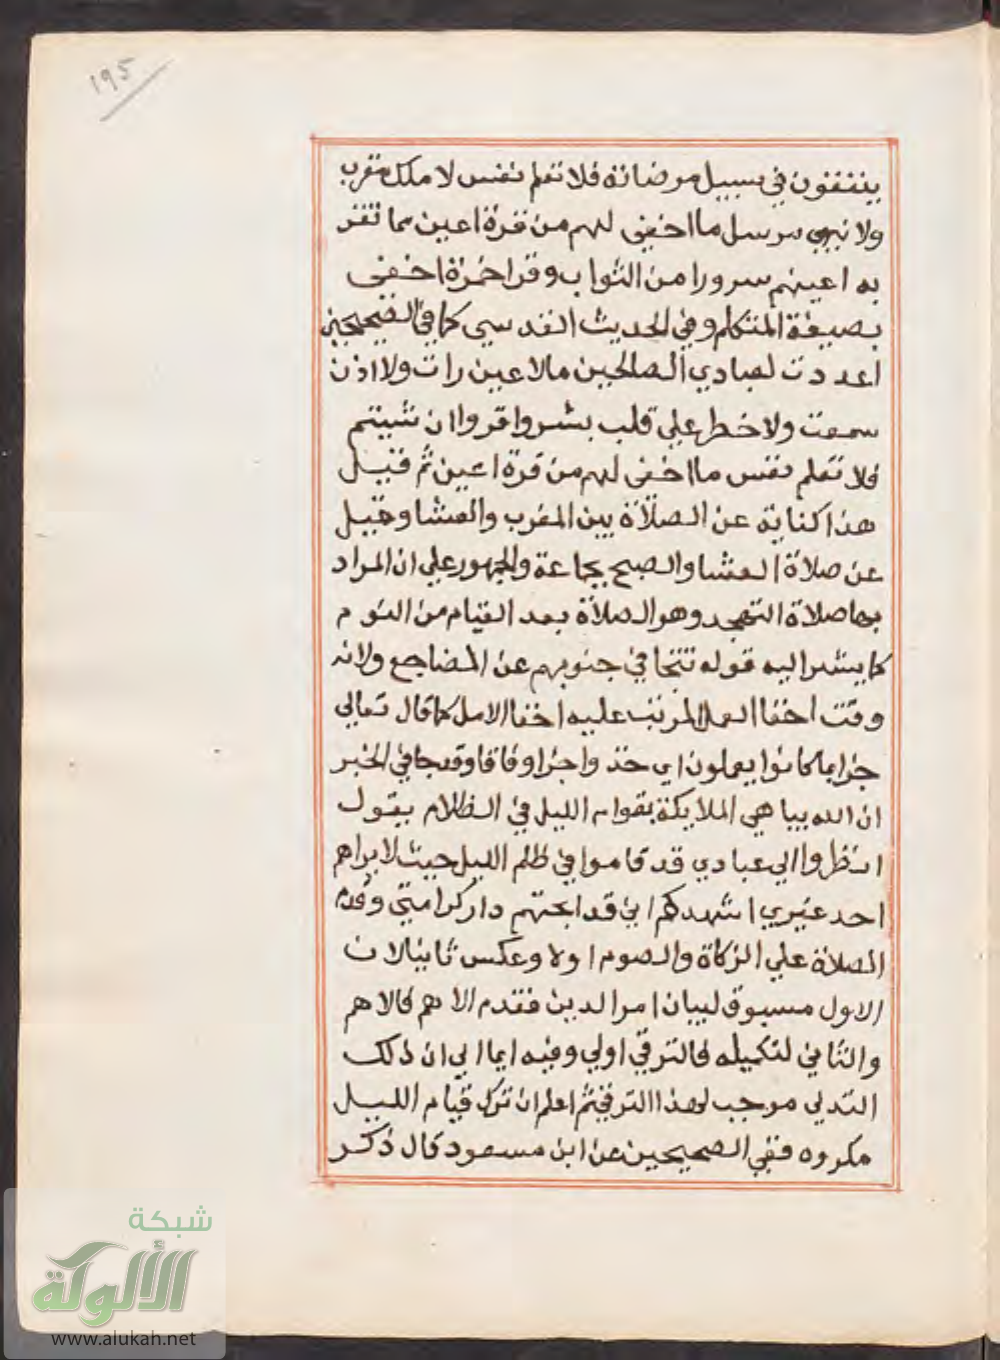 ١٩٥
ينفقون في سبيل مرضاته فلا تعلم نفس لا ملك مقرب
ولا نبي مرسل ما اخفي لهم من قرة اعين مما تقر
به اعينهم سرورا من الثواب وقرا حمزة اخفي
بصيغة المتكلم وفي الحديث القدسي كما في الصحيحين
اعددت لعبادي الصالحين مالا عين رات ولا اذن
سمعت ولا خطر علي قلب بشر واقروا ان شيتم
فلا تعلم نفس ما اخفي لهم من قرة اعين ثم قيل
هذا كناية عن الصلاة بين المغرب والعشا وقيل
عن صلاة العشا والصبح بجماعة والجمهور علي ان المراد
بها صلاة التهجد وهو الصلاة بعد القيام من النوم
كما يشير اليه قوله تتجافي جنوبهم عن المضاجع ولانه
وقت اخفا العمل المرتب عليه اخفا الامل كما قال تعالي
جزا بما كانوا يعملون اي خذوا جزا وفاقا وقد جا في الخبر
ان الله يباهي الملايكة بقوام الليل في الظلام يقول
انظروا الي عبادي قد قاموا في ظلم الليل حيث لا يراهم
احد غيري اشهدكم اني قد ابحتهم دار كرامتي وقدم
الصلاة علي الزكاة والصوم اولا وعكس ثانيا لان
الاول مسبوق لبيان امر الدين فقدم الاهم فالاهم
والثاني لتكميله فالترقي اولي وفيه ايما الي ان ذلك
التدلي موجب لهذا الترقي ثم اعلم ان ترك قيام الليل
مكروه ففي الصحيحين عن ابن مسعود قال ذكر
شبكة
الألوكة
www.alukah.net